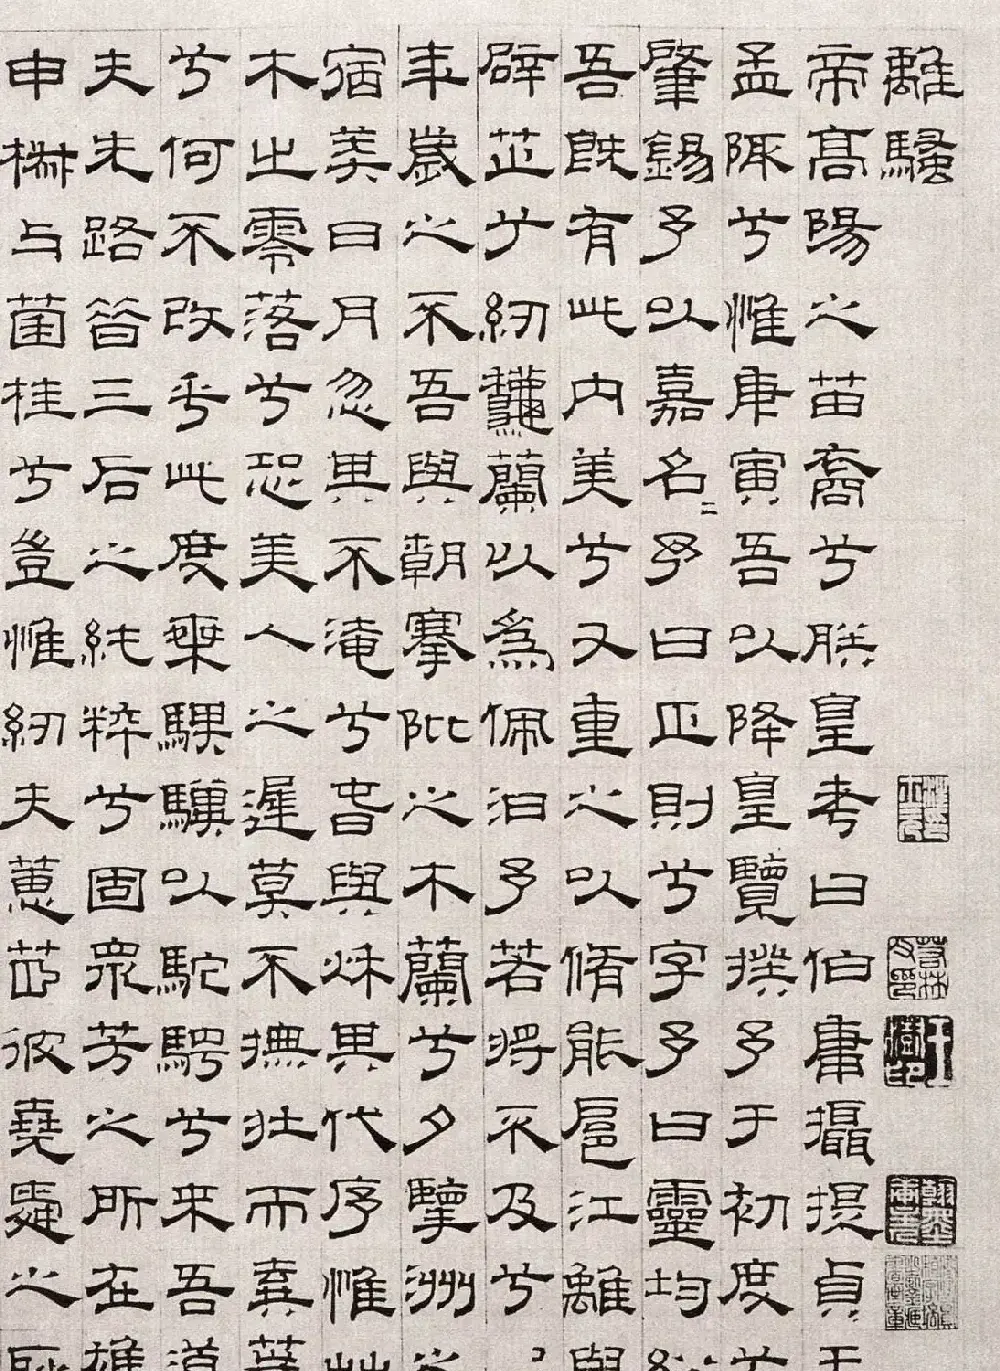 離騷
帝高陽之苗裔兮朕皇考曰伯庸攝提貞于
孟陬兮惟庚寅吾以降皇覽揆予于初度兮
肇錫予以嘉名二予曰正則兮字予曰靈均紛
吾既有此內美兮又重之以脩能扈江離與
辟芷兮紉龝蘭以為佩汩予若將不及兮
年歲之不吾與朝搴阰之木蘭兮夕擥洲之
宿莽日月忽其不淹兮春與秋其代序惟艸
木之零落兮恐美人之遲莫不撫壯而棄薉
兮何不改乎此度乘騏驥以駝騁兮來吾道
夫先路昔三后之純粹兮固眾芳之所在雜
申椒与菌桂兮豈惟紉夫蕙茝彼堯舜之耿